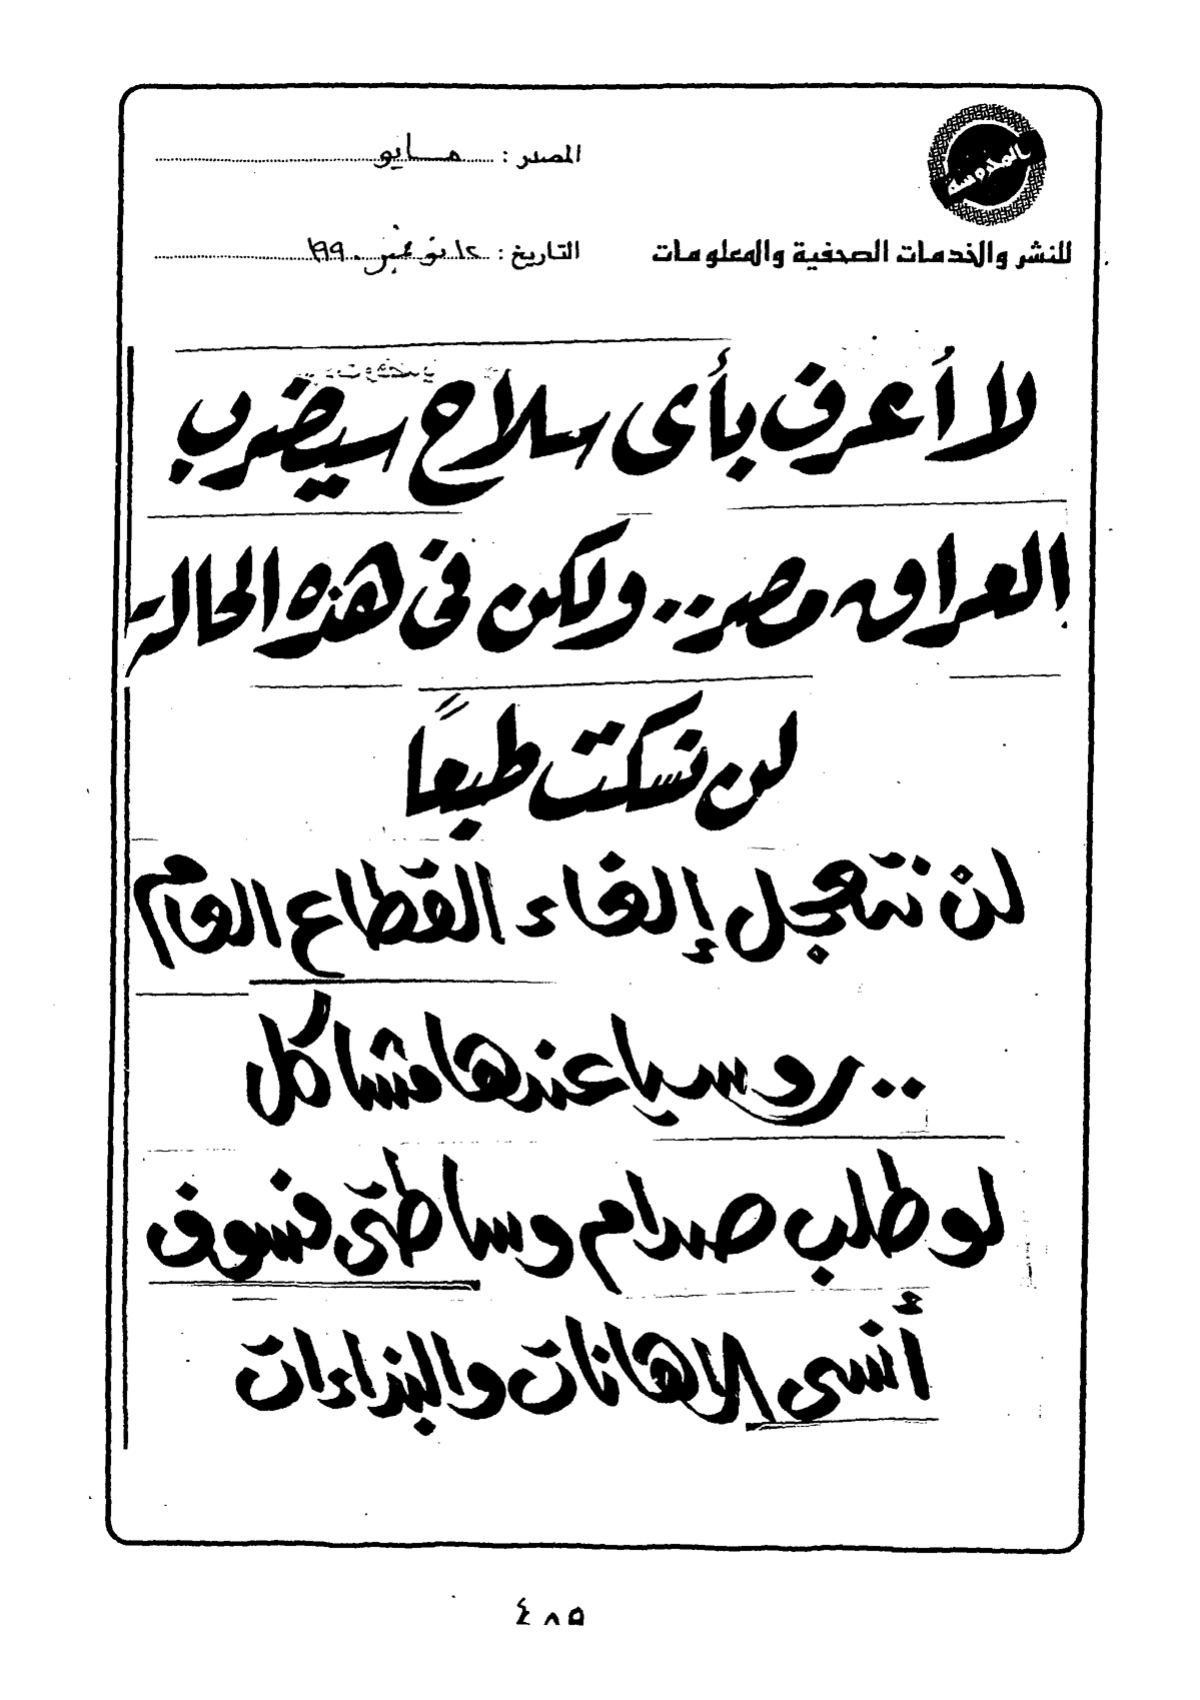 المصدر : مايو
المحروسة
للنشر والخدمات الصحفية والمعلومات
التاريخ : ١٢ نوفمبر ١٩٩٠
لا أعرف بأى سلاح سيضرب
العراق مصر .. ولكن فى هذه الحالة
لن نسكت طبعاً
لن نتعجل إلغاء القطاع العام
.. روسيا عندها مشاكل
لو طلب صدام وساطتى فسوف
أنسى الإهانات والبذاءات